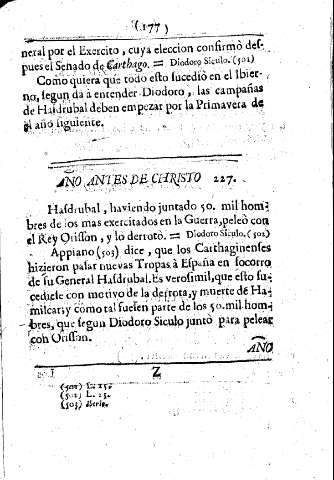 (177)
neral por el Exercito, cuya eleccion confirmò des-
pues el Senado de Carthago. = Diodoro Siculo. (501)
Como quiera que todo esto sucediò en el Ibier-
no, segun dà à entender Diodoro, las campañas
de Hasdrubal deben empezar por la Primavera de
el año siguiente.
AÑO ANTES DE CHRISTO 227.
Hasdrubal, haviendo juntado 50. mil hom-
bres de los mas exercitados en la Guerra, peleò con
el Rey Orisson, y lo derrotò. = Diodoro Siculo. (502)
Appiano (503) dice, que los Carthaginenses
hizieron pasar nuevas Tropas à España en socorro
de su General Hasdrubal. Es verosimil, que esto su-
cediese con motivo de la derrota, y muerte de Ha-
milcar; y como tal fuesen parte de los 50. mil hom-
bres, que segun Diodoro Siculo juntò para pelear
con Orisson.
AÑO
Z
(501) L. 25.
(502) L. 25.
(503) Iberic.